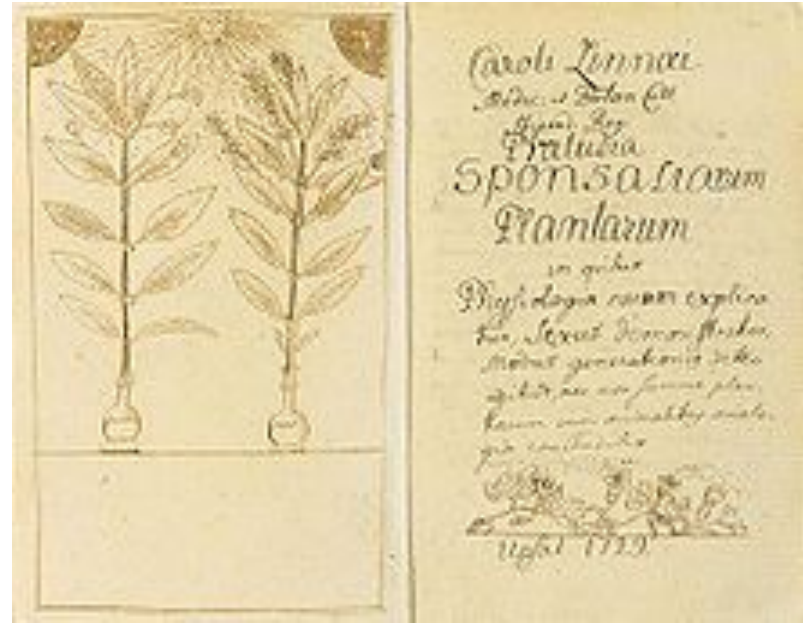 Caroli Linnæi
Medic: et Botan
Præludia
Sponsaliarum
Plantarum
in quibus
Physiologia earum explica
tur, Sexus demonstratur
Modus generationis dete
gitur, nec non summa plan
tarum cum animalibus analo
gia concluditur
Upsal 1729